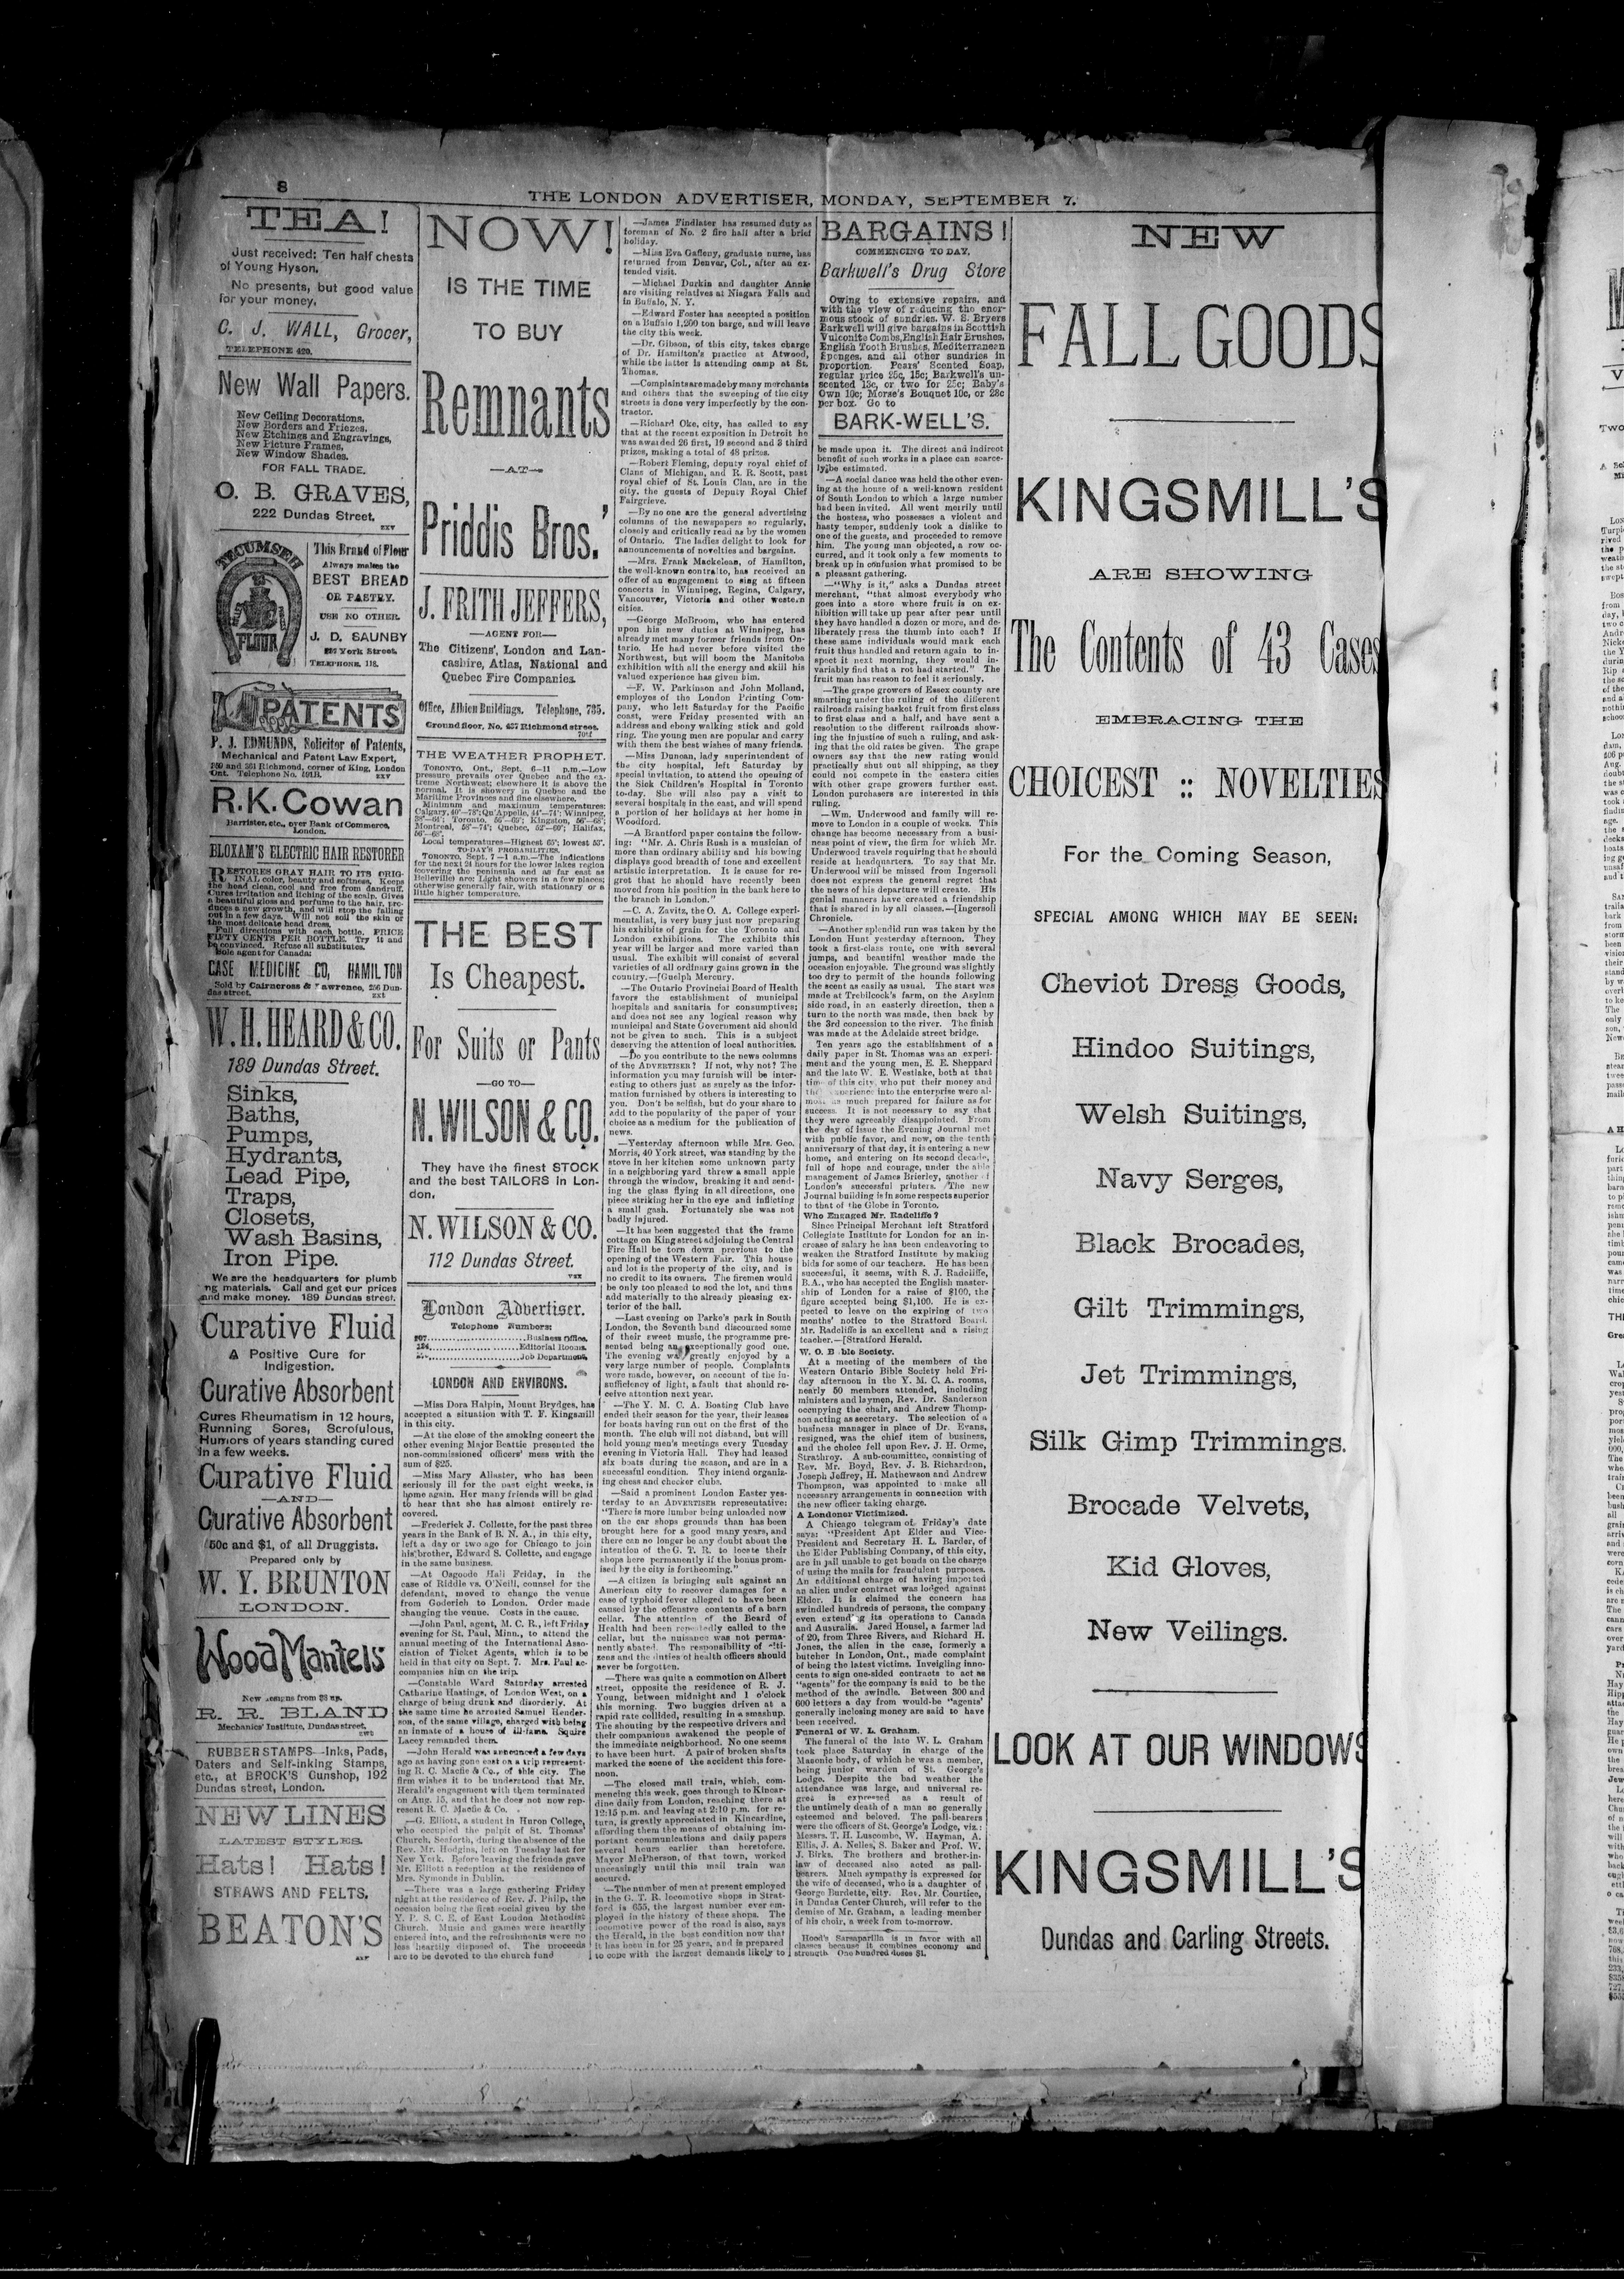 8
THE LONDON ADVERTISER, MONDAY, SEPTEMBER 7.
TEA!
Just received: Ten half chests
of Young Hyson.
No presents, but good value
for your money.
C. J. WALL, Grocer,
TELEPHONE 420.
New Wall Papers.
New Ceiling Decorations.
New Borders and Friezes.
New Etchings and Engravings,
New Picture Frames,
New Window Shades.
FOR FALL TRADE.
O. B. GRAVES,
222 Dundas Street.
TECUMSEH
FLOUR
This Brand of Flour
Always makes the
BEST BREAD
OR PASTRY.
USE NO OTHER.
J. D. SAUNBY
York Street.
TELEPHONE 118.
PATENTS
P. J. EDMUNDS, Solicitor of Patents,
Mechanical and Patent Law Expert,
and 261 Richmond, corner of King, London
Ont. Telephone No.
R. K. Cowan
Barrister, etc., over Bank of Commerce,
London.
BLOXAM'S ELECTRIC HAIR RESTORER
RESTORES GRAY HAIR TO ITS ORIG-
INAL color, beauty and softness. Keeps
the head clean, cool and free from dandruff.
Cures irritation and itching of the scalp. Gives
a beautiful gloss and perfume to the hair, pro-
duces a new growth, and will stop the falling
out in a few days. Will not soil the skin or
the most delicate head dress.
Full directions with each bottle. PRICE
FIFTY CENTS PER BOTTLE. Try it and
be convinced. Refuse all substitutes.
Sole agent for Canada:
CASE MEDICINE CO, HAMILTON
Sold by Cairncross & Lawrence, 256 Dun-
das street.
W. H. HEARD & CO.
189 Dundas Street.
Sinks,
Baths,
Pumps,
Hydrants,
Lead Pipe,
Traps,
Closets,
Wash Basins,
Iron Pipe.
We are the headquarters for plumb
ng materials. Call and get our prices
and make money. 189 Dundas street.
Curative Fluid
A Positive Cure for
Indigestion.
Curative Absorbent
Cures Rheumatism in 12 hours,
Running Sores, Scrofulous,
Humors of years standing cured
in a few weeks.
Curative Fluid
—AND—
Curative Absorbent
50c and $1, of all Druggists.
Prepared only by
W. Y. BRUNTON
LONDON.
Wood Mantels
New designs from $8 up.
R. R. BLAND
Mechanics' Institute, Dundas street.
RUBBER STAMPS—Inks, Pads,
Daters and Self-inking Stamps,
etc., at BROCK'S Gunshop, 192
Dundas street, London.
NEW LINES
LATEST STYLES.
Hats! Hats!
STRAWS AND FELTS.
BEATON'S
NOW!
IS THE TIME
TO BUY
Remnants
—AT—
Priddis Bros.'
J. FRITH JEFFERS,
—AGENT FOR—
The Citizens', London and Lan-
cashire, Atlas, National and
Quebec Fire Companies.
Office, Albion Buildings. Telephone, 735.
Ground floor, No. 437 Richmond street.
THE WEATHER PROPHET.
TORONTO, Ont., Sept. 6—11 p.m.—Low
pressure prevails over Quebec and the ex-
treme Northwest; elsewhere it is above the
normal. It is showery in Quebec and the
Maritime Provinces and fine elsewhere.
Minimum and maximum temperatures:
Calgary, 40°—78°; Qu'Appelle, 44°—74°; Winnipeg,
38°—64°; Toronto, 56°—65°; Kingston, 56°—68°;
Montreal, 58°—74°; Quebec, 52°—60°; Halifax,
56°—68°.
Local temperatures—Highest 65°; lowest 53°.
TO-DAY'S PROBABILITIES.
TORONTO, Sept. 7—1 a.m.—The indications
for the next 24 hours for the lower lakes region
(covering the peninsula and as far east as
Belleville) are: Light showers in a few places;
otherwise generally fair, with stationary or a
little higher temperature.
THE BEST
Is Cheapest.
For Suits or Pants
—GO TO—
N. WILSON & CO.
They have the finest STOCK
and the best TAILORS in Lon-
don.
N. WILSON & CO.
112 Dundas Street.
London Advertiser.
Telephone Numbers:
Business Office.
Editorial Rooms.
Job Department.
LONDON AND ENVIRONS.
—Miss Dora Halpin, Mount Brydges, has
accepted a situation with T. F. Kingsmill
in this city.
—At the close of the smoking concert the
other evening Major Beattie presented the
non-commissioned officers' mess with the
sum of $25.
—Miss Mary Allaster, who has been
seriously ill for the past eight weeks, is
home again. Her many friends will be glad
to hear that she has almost entirely re-
covered.
—Frederick J. Collette, for the past three
years in the Bank of B. N. A., in this city,
left a day or two ago for Chicago to join
his brother, Edward S. Collette, and engage
in the same business.
—At Osgoode Hall Friday, in the
case of Riddle vs. O'Neill, counsel for the
defendant, moved to change the venue
from Goderich to London. Order made
changing the venue. Costs in the cause.
—John Paul, agent, M. C. R., left Friday
evening for St. Paul, Minn., to attend the
annual meeting of the International Asso-
ciation of Ticket Agents, which is to be
held in that city on Sept. 7. Mrs. Paul ac-
companies him on the trip.
—Constable Ward Saturday arrested
Catharine Hastings, of London West, on a
charge of being drunk and disorderly. At
the same time he arrested Samuel Hender-
son, of the same village, charged with being
an inmate of a house of ill-fame. Squire
Lacey remanded them.
—John Herald was announced a few days
ago as having gone east on a trip represent-
ing R. C. Macfie & Co., of this city. The
firm wishes it to be understood that Mr.
Herald's engagement with them terminated
on Aug. 15, and that he does not now rep-
resent R. C. Macfie & Co.
—G. Elliott, a student in Huron College,
who occupied the pulpit of St. Thomas'
Church, Seaforth, during the absence of the
Rev. Mr. Hodgins, left on Tuesday last for
New York. Before leaving the friends gave
Mr. Elliott a reception at the residence of
Mrs. Symonds in Dublin.
—There was a large gathering Friday
night at the residence of Rev. J. Philp, the
occasion being the first social given by the
Y. P. S. C. E. of East London Methodist
Church. Music and games were heartily
entered into, and the refreshments were no
less heartily disposed of. The proceeds
are to be devoted to the church fund
—James Findlater has resumed duty as
foreman of No. 2 fire hall after a brief
holiday.
—Miss Eva Gafleny, graduate nurse, has
returned from Denver, Col., after an ex-
tended visit.
—Michael Durkin and daughter Annie
are visiting relatives at Niagara Falls and
in Buffalo, N. Y.
—Edward Foster has accepted a position
on a Buffalo 1,200 ton barge, and will leave
the city this week.
—Dr. Gibson, of this city, takes charge
of Dr. Hamilton's practice at Atwood,
while the latter is attending camp at St.
Thomas.
—Complaints are made by many merchants
and others that the sweeping of the city
streets is done very imperfectly by the con-
tractor.
—Richard Oke, city, has called to say
that at the recent exposition in Detroit he
was awarded 26 first, 19 second and 3 third
prizes, making a total of 48 prizes.
—Robert Fleming, deputy royal chief of
Clans of Michigan, and R. R. Scott, past
royal chief of St. Louis Clan, are in the
city, the guests of Deputy Royal Chief
Fairgrieve.
—By no one are the general advertising
columns of the newspapers so regularly,
closely and critically read as by the women
of Ontario. The ladies delight to look for
announcements of novelties and bargains.
—Mrs. Frank Mackelcan, of Hamilton,
the well-known contralto, has received an
offer of an engagement to sing at fifteen
concerts in Winnipeg, Regina, Calgary,
Vancouver, Victoria and other western
cities.
—George McBroom, who has entered
upon his new duties at Winnipeg, has
already met many former friends from On-
tario. He had never before visited the
Northwest, but will boom the Manitoba
exhibition with all the energy and skill his
valued experience has given him.
—F. W. Parkinson and John Molland,
employes of the London Printing Com-
pany, who left Saturday for the Pacific
coast, were Friday presented with an
address and ebony walking stick and gold
ring. The young men are popular and carry
with them the best wishes of many friends.
—Miss Duncan, lady superintendent of
the city hospital, left Saturday by
special invitation, to attend the opening of
the Sick Children's Hospital in Toronto
to-day. She will also pay a visit to
several hospitals in the east, and will spend
a portion of her holidays at her home in
Woodford.
—A Brantford paper contains the follow-
ing: "Mr. A. Chris Rush is a musician of
more than ordinary ability and his bowing
displays good breadth of tone and excellent
artistic interpretation. It is cause for re-
gret that he should have recently been
moved from his position in the bank here to
the branch in London."
—C. A. Zavitz, the O. A. College experi-
mentalist, is very busy just now preparing
his exhibits of grain for the Toronto and
London exhibitions. The exhibits this
year will be larger and more varied than
usual. The exhibit will consist of several
varieties of all ordinary gains grown in the
country.—[Guelph Mercury.
—The Ontario Provincial Board of Health
favors the establishment of municipal
hospitals and sanitaria for consumptives;
and does not see any logical reason why
municipal and State Government aid should
not be given to such. This is a subject
deserving the attention of local authorities.
—Do you contribute to the news columns
of the ADVERTISER? If not, why not? The
information you may furnish will be inter-
esting to others just as surely as the infor-
mation furnished by others is interesting to
you. Don't be selfish, but do your share to
add to the popularity of the paper of your
choice as a medium for the publication of
news.
—Yesterday afternoon while Mrs. Geo.
Morris, 40 York street, was standing by the
stove in her kitchen some unknown party
in a neighboring yard threw a small apple
through the window, breaking it and send-
ing the glass flying in all directions, one
piece striking her in the eye and inflicting
a small gash. Fortunately she was not
badly injured.
—It has been suggested that the frame
cottage on King street adjoining the Central
Fire Hall be torn down previous to the
opening of the Western Fair. This house
and lot is the property of the city, and is
no credit to its owners. The firemen would
be only too pleased to sod the lot, and thus
add materially to the already pleasing ex-
terior of the hall.
—Last evening on Parke's park in South
London, the Seventh band discoursed some
of their sweet music, the programme pre-
sented being an exceptionally good one.
The evening was greatly enjoyed by a
very large number of people. Complaints
were made, however, on account of the in-
sufficiency of light, a fault that should re-
ceive attention next year.
—The Y. M. C. A. Boating Club have
ended their season for the year, their leases
for boats having run out on the first of the
month. The club will not disband, but will
hold young men's meetings every Tuesday
evening in Victoria Hall. They had leased
six boats during the season, and are in a
successful condition. They intend organiz-
ing chess and checker clubs.
—Said a prominent London Easter yes-
terday to an ADVERTISER representative:
"There is more lumber being unloaded now
on the car shops grounds than has been
brought here for a good many years, and
there can no longer be any doubt about the
intention of the G. T. R. to locate their
shops here permanently if the bonus prom-
ised by the city is forthcoming."
—A citizen is bringing suit against an
American city to recover damages for a
case of typhoid fever alleged to have been
caused by the offensive contents of a barn
cellar. The attention of the Board of
Health had been repeatedly called to the
cellar, but the nuisance was not perma-
nently abated. The responsibility of citi-
zens and the duties of health officers should
never be forgotten.
—There was quite a commotion on Albert
street, opposite the residence of R. J.
Young, between midnight and 1 o'clock
this morning. Two buggies driven at a
rapid rate collided, resulting in a smashup.
The shouting by the respective drivers and
their companions awakened the people of
the immediate neighborhood. No one seems
to have been hurt. A pair of broken shafts
marked the scene of the accident this fore-
noon.
—The closed mail train, which, com-
mencing this week, goes through to Kincar-
dine daily from London, reaching there at
12:15 p.m. and leaving at 2:10 p.m. for re-
turn, is greatly appreciated in Kincardine,
affording them the means of obtaining im-
portant communications and daily papers
several hours earlier than heretofore.
Mayor McPherson, of that town, worked
unceasingly until this mail train was
secured.
—The number of men at present employed
in the G. T. R. locomotive shops in Strat-
ford is 655, the largest number ever em-
ployed in the history of these shops. The
locomotive power of the road is also, says
the Herald, in the best condition now that
it has been in for 25 years, and is prepared
to cope with the largest demands likely to
BARGAINS!
COMMENCING TO DAY.
Barkwell's Drug Store
Owing to extensive repairs, and
with the view of reducing the enor-
mous stock of sundries, W. S. Bryers
Barkwell will give bargains in Scottish
Vulconite Combs, English Hair Brushes,
English Tooth Brushes, Mediterranean
Sponges, and all other sundries in
proportion. Pears' Scented Soap,
regular price 25c, 15c; Barkwell's un-
scented 13c, or two for 25c; Baby's
Own 10c; Morse's Bouquet 10c, or 28c
per box. Go to
BARK-WELL'S.
be made upon it. The direct and indirect
benefit of such works in a place can scarce-
ly be estimated.
—A social dance was held the other even-
ing at the house of a well-known resident
of South London to which a large number
had been invited. All went merrily until
the hostess, who possesses a violent and
hasty temper, suddenly took a dislike to
one of the guests, and proceeded to remove
him. The young man objected, a row oc-
curred, and it took only a few moments to
break up in confusion what promised to be
a pleasant gathering.
—"Why is it," asks a Dundas street
merchant, "that almost everybody who
goes into a store where fruit is on ex-
hibition will take up pear after pear until
they have handled a dozen or more, and de-
liberately press the thumb into each? If
these same individuals would mark each
fruit thus handled and return again to in-
spect it next morning, they would in-
variably find that a rot had started." The
fruit man has reason to feel it seriously.
—The grape growers of Essex county are
smarting under the ruling of the different
railroads raising basket fruit from first class
to first class and a half, and have sent a
resolution to the different railroads show-
ing the injustice of such a ruling, and ask-
ing that the old rates be given. The grape
owners say that the new rating would
practically shut out all shipping, as they
could not compete in the eastern cities
with other grape growers further east.
London purchasers are interested in this
ruling.
—Wm. Underwood and family will re-
move to London in a couple of weeks. This
change has become necessary from a busi-
ness point of view, the firm for which Mr.
Underwood travels requiring that he should
reside at headquarters. To say that Mr.
Underwood will be missed from Ingersoll
does not express the general regret that
the news of his departure will create. His
genial manners have created a friendship
that is shared in by all classes.—[Ingersoll
Chronicle.
—Another splendid run was taken by the
London Hunt yesterday afternoon. They
took a first-class route, one with several
jumps, and beautiful weather made the
occasion enjoyable. The ground was slightly
too dry to permit of the hounds following
the scent as easily as usual. The start was
made at Trebilcock's farm, on the Asylum
side road, in an easterly direction, then a
turn to the north was made, then back by
the 3rd concession to the river. The finish
was made at the Adelaide street bridge.
Ten years ago the establishment of a
daily paper in St. Thomas was an experi-
ment and the young men, E. E. Sheppard
and the late W. E. Westlake, both at that
time of this city, who put their money and
their experience into the enterprise were al-
most as much prepared for failure as for
success. It is not necessary to say that
they were agreeably disappointed. From
the day of issue the Evening Journal met
with public favor, and now, on the tenth
anniversary of that day, it is entering a new
home, and entering on its second decade,
full of hope and courage, under the able
management of James Brierley, another of
London's successful printers. The new
Journal building is in some respects superior
to that of the Globe in Toronto.
Who Engaged Mr. Radcliffe?
Since Principal Merchant left Stratford
Collegiate Institute for London for an in-
crease of salary he has been endeavoring to
weaken the Stratford Institute by making
bids for some of our teachers. He has been
successful, it seems, with S. J. Radcliffe,
B.A., who has accepted the English master-
ship of London for a raise of $100, the
figure accepted being $1,100. He is ex-
pected to leave on the expiring of two
months' notice to the Stratford Board.
Mr. Radcliffe is an excellent and a rising
teacher.—[Stratford Herald.
W. O. Bible Society.
At a meeting of the members of the
Western Ontario Bible Society held Fri-
day afternoon in the Y. M. C. A. rooms,
nearly 50 members attended, including
ministers and laymen, Rev. Dr. Sanderson
occupying the chair, and Andrew Thomp-
son acting as secretary. The selection of a
business manager in place of Dr. Evans,
resigned, was the chief item of business,
and the choice fell upon Rev. J. H. Orme,
Strathroy. A sub-committee, consisting of
Rev. Mr. Boyd, Rev. J. B. Richardson,
Joseph Jeffrey, H. Mathewson and Andrew
Thompson, was appointed to make all
necessary arrangements in connection with
the new officer taking charge.
A Londoner Victimized.
A Chicago telegram of Friday's date
says: "President Apt Elder and Vice-
President and Secretary H. L. Barder, of
the Elder Publishing Company, of this city,
are in jail unable to get bonds on the charge
of using the mails for fraudulent purposes.
An additional charge of having imported
an alien under contract was lodged against
Elder. It is claimed the concern has
swindled hundreds of persons, the company
even extending its operations to Canada
and Australia. Jared Housel, a farmer lad
of 20, from Three Rivers, and Richard H.
Jones, the alien in the case, formerly a
butcher in London, Ont., made complaint
of being the latest victims. Inveigling inno-
cents to sign one-sided contracts to act as
"agents" for the company is said to be the
method of the swindle. Between 300 and
600 letters a day from would-be "agents"
generally inclosing money are said to have
been received.
Funeral of W. L. Graham.
The funeral of the late W. L. Graham
took place Saturday in charge of the
Masonic body, of which he was a member,
being junior warden of St. George's
Lodge. Despite the bad weather the
attendance was large, and universal re-
gret is expressed as a result of
the untimely death of a man so generally
esteemed and beloved. The pall-bearers
were the officers of St. George's Lodge, viz.:
Messrs. T. H. Luscombe, W. Hayman, A.
Ellis, J. A. Nelles, S. Baker and Prof. W.
J. Birks. The brothers and brother-in-
law of deceased also acted as pall-
bearers. Much sympathy is expressed for
the wife of deceased, who is a daughter of
George Burdette, city. Rev. Mr. Courtice,
in Dundas Center Church, will refer to the
demise of Mr. Graham, a leading member
of his choir, a week from to-morrow.
Hood's Sarsaparilla is in favor with all
classes because it combines economy and
strength. One hundred doses $1.
NEW
FALL GOODS
KINGSMILL'S
ARE SHOWING
The Contents of 43 Cases
EMBRACING THE
CHOICEST :: NOVELTIES
For the Coming Season,
SPECIAL AMONG WHICH MAY BE SEEN:
Cheviot Dress Goods,
Hindoo Suitings,
Welsh Suitings,
Navy Serges,
Black Brocades,
Gilt Trimmings,
Jet Trimmings,
Silk Gimp Trimmings.
Brocade Velvets,
Kid Gloves,
New Veilings.
LOOK AT OUR WINDOWS
KINGSMILL'S
Dundas and Carling Streets.